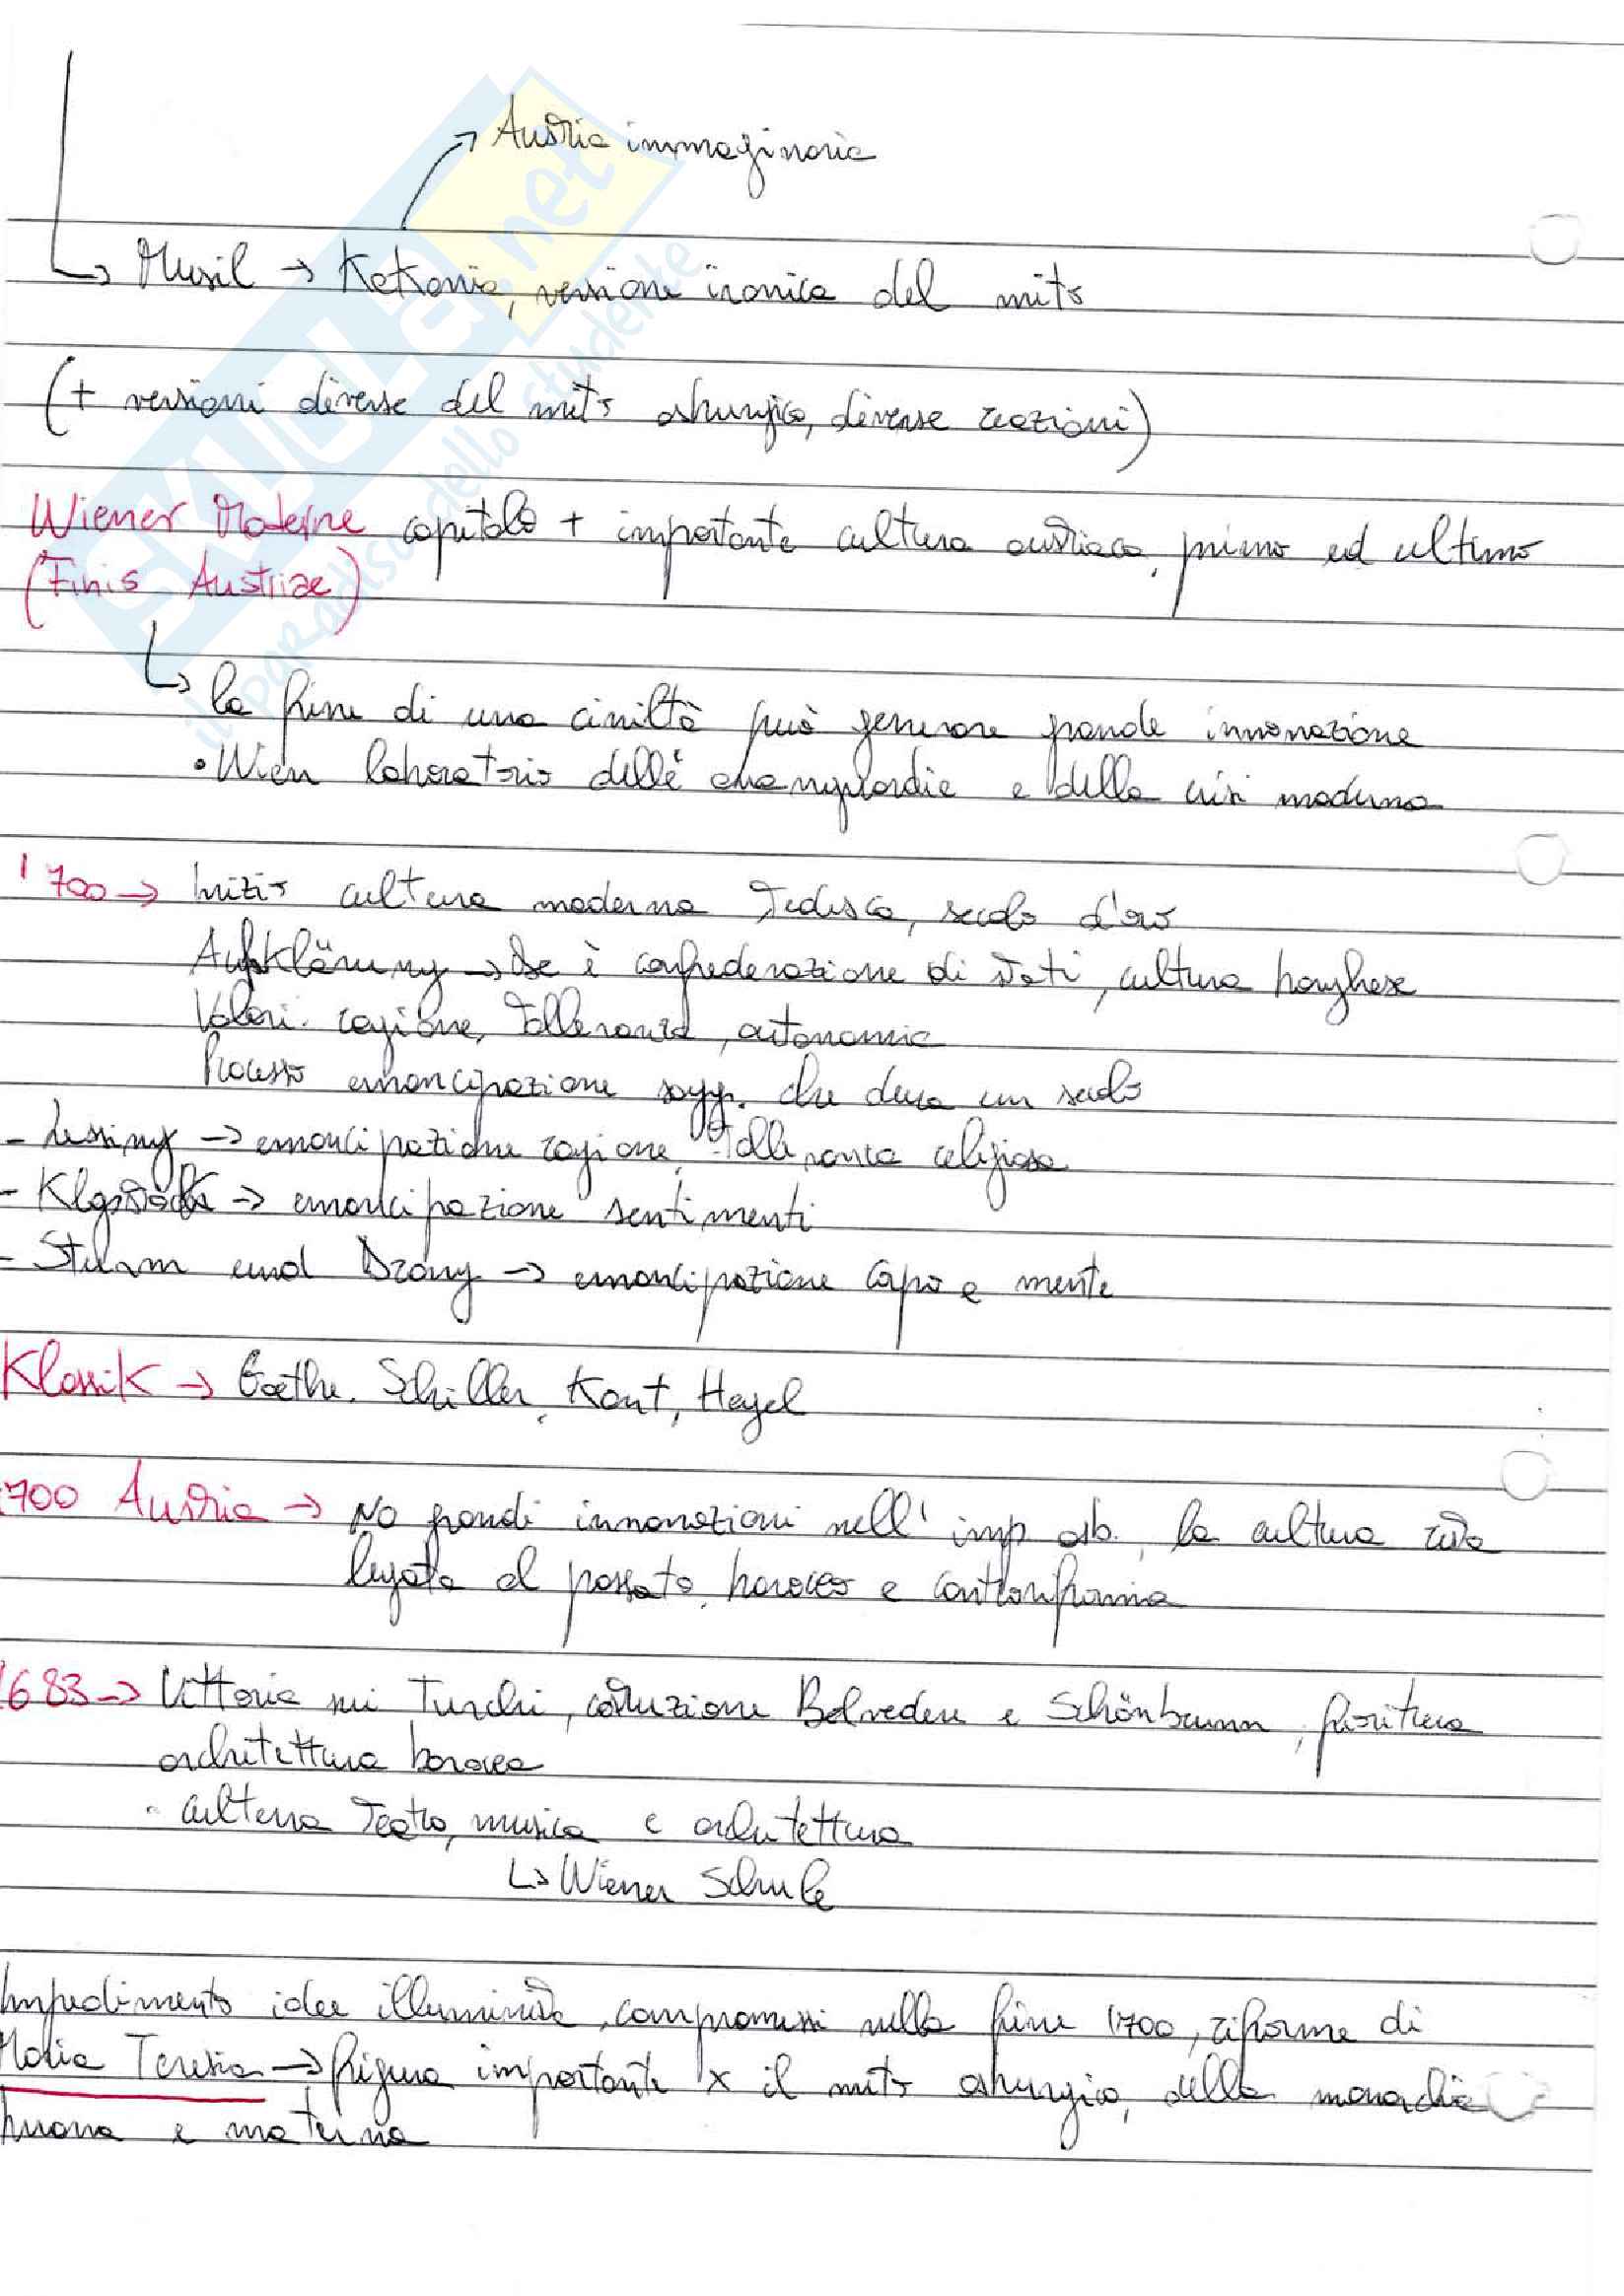 → Austria immaginaria
↳ Musil → Kakania, versione ironica del mito
(+ versioni diverse del mito asburgico, diverse reazioni)
Wiener Moderne capitolo + importante cultura austriaca, primo ed ultimo
(Finis Austriae)
↳ la fine di una civiltà può generare grande innovazione
• Wien laboratorio delle avanguardie e della crisi moderna
1700 → Inizio cultura moderna tedesca, secolo d'oro
Aufklärung → De è confederazione di stati, cultura borghese
Valori: ragione, tolleranza, autonomia
Processo emancipazione sogg. che dura un secolo
- Lessing → emancipazione ragione, tolleranza religiosa
- Klopstock → emancipazione sentimenti
- Sturm und Drang → emancipazione corpo e mente
Klassik → Goethe, Schiller, Kant, Hegel
1700 Austria → No grandi innovazioni nell'imp asb., la cultura resta
legata al passato, barocco e controriforma
1683 → Vittoria sui Turchi, costruzione Belvedere e Schönbrunn, fioritura
architettura barocca
• cultura teatro, musica e architettura
↳ Wiener Schule
Impedimento idee illuministe, compromessi nella fine 1700, riforme di
Maria Teresia → figura importante x il mito asburgico, della monarchia
buona e materna
SKUOLA.net
il paradiso dello studente